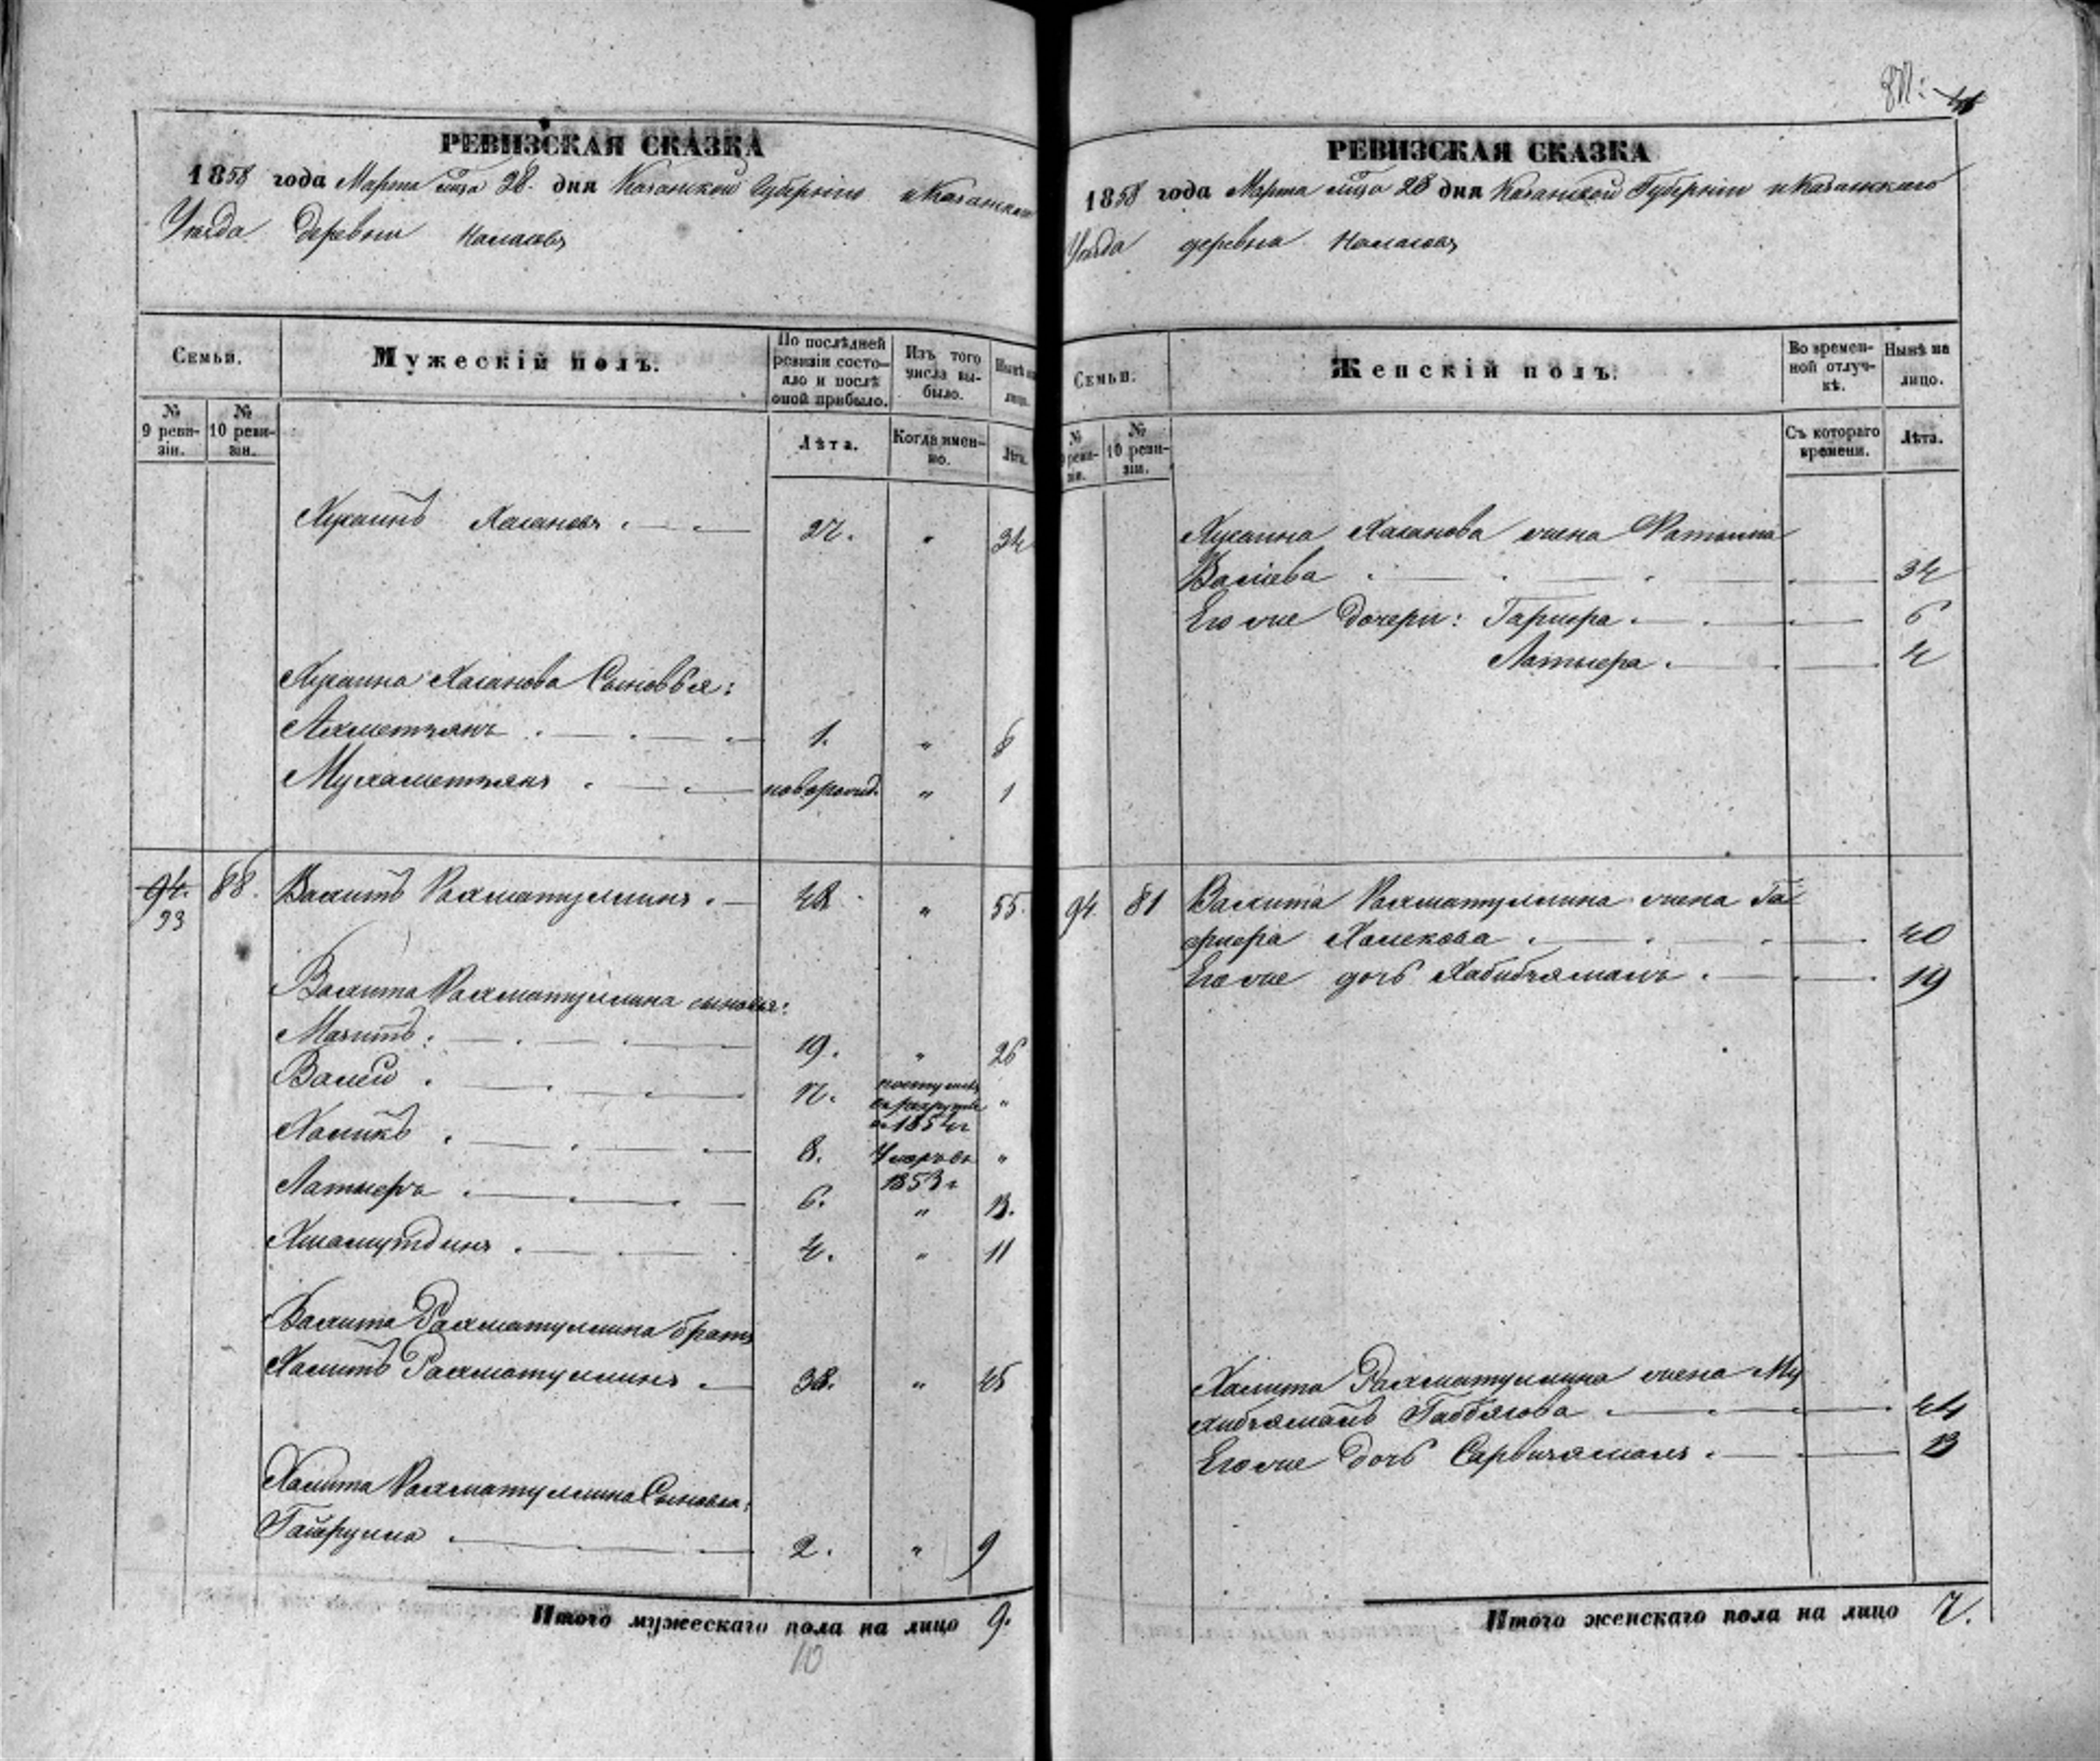 РЕВИЗСКАЯ СКАЗКА
1858 года Марта м-ца 28 дня Казанской Губерніи и Казанскаго
Уѣзда Деревни
Семьи.
Мужескій полъ.
По послѣдней ревизіи состояло и послѣ оной прибыло.
Изъ того числа выбыло.
Нынѣ на лицо.
№ 9 ревизіи.
№ 10 ревизіи.
Лѣта.
Когда именно.
Лѣта.
Хусаинъ Хасановъ 27. " 34
Хусаина Хасанова Сыновья:
Ахметзянъ 1. " 8
Мухаметзянъ новорожд. " 1
94. 93 88. Вахитъ Рахматуллинъ 48 " 55.
Вахита Рахматуллина сыновья:
Мазитъ: 19. " 26
Валей 12. поступилъ въ рекруты въ 1854 г "
Халикъ 8. Умеръ въ 1853 г "
Латыфъ 6. " 13.
Хисамутдинъ 4. " 11
Вахита Рахматуллина братъ
Хамитъ Рахматуллинъ 38. " 45
Хамита Рахматуллина Сыновья:
2. " 9
Итого мужескаго пола на лицо 9.
10
РЕВИЗСКАЯ СКАЗКА
1858 года Марта м-ца 28 дня Казанской Губерніи и Казанскаго
Уѣзда деревни
Семьи.
Женскій полъ.
Во временной отлучкѣ.
Нынѣ на лицо.
№ 9 ревизіи.
№ 10 ревизіи.
Съ котораго времени.
Лѣта.
Хусаина Хасанова жена Фатыма
Валіева 34
Его же Дочери: Гафифа 6
Латыфа 4
94. 81 Вахита Рахматуллина жена Га
фифа Халекова 40
Его же дочь Хабибзямалъ 19
Хамита Рахматуллина жена Му
хибзямалъ 44
Его же Дочь Сарвизямалъ 13
Итого женскаго пола на лицо 7.